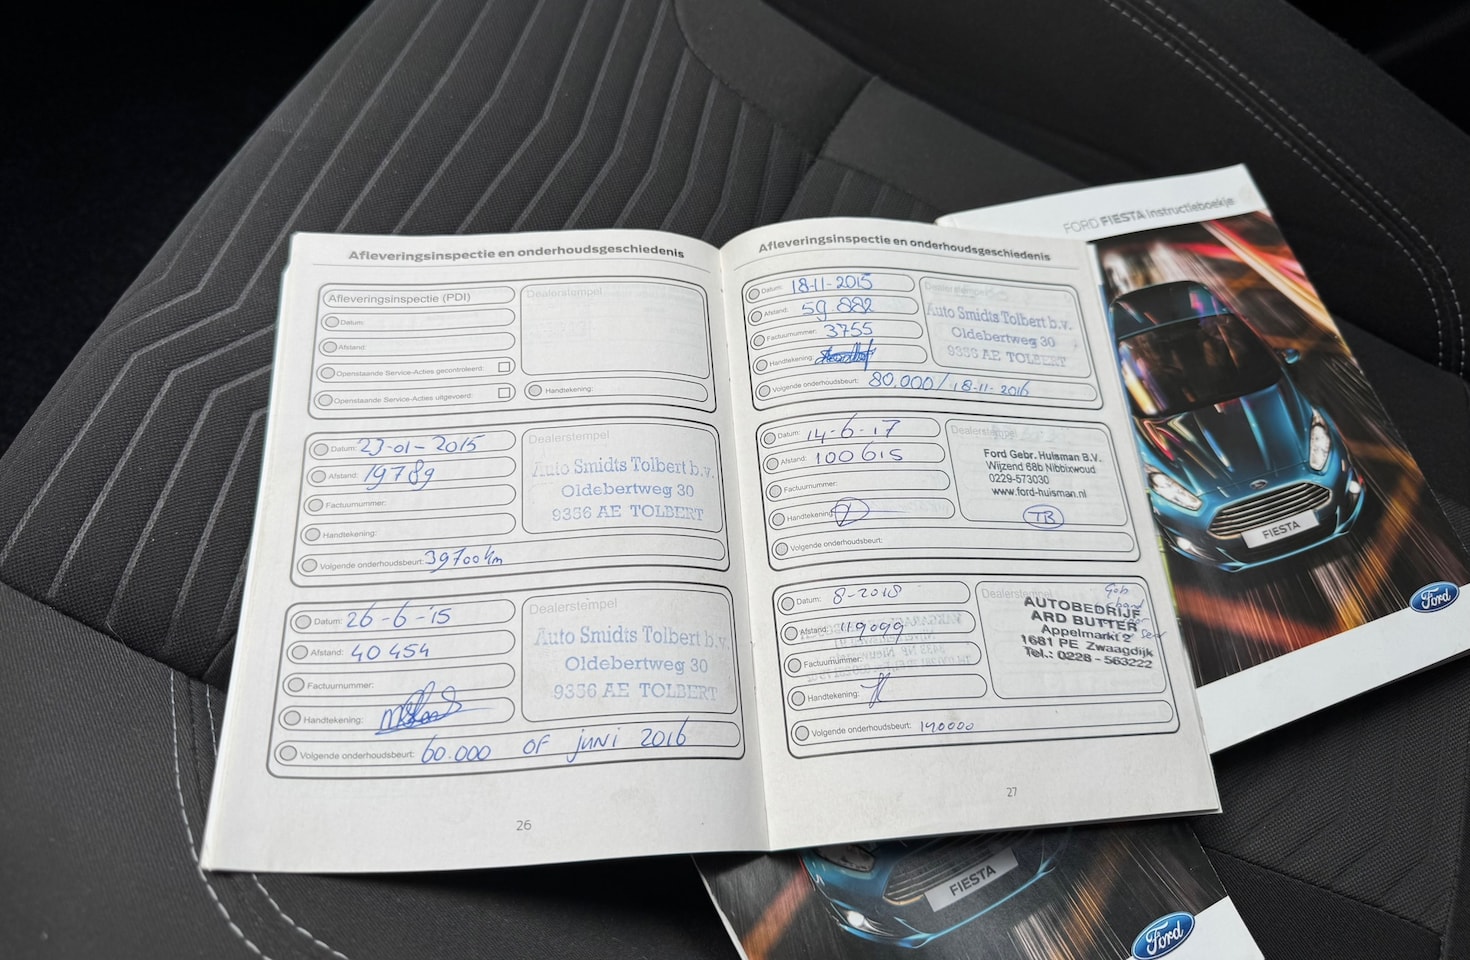 Afleveringsinspectie en onderhoudsgeschiedenis
Afleveringsinspectie (PDI)
Datum:
Afstand:
Openstaande Service-Acties gecontroleerd:
Openstaande Service-Acties uitgevoerd:
Dealerstempel
Handtekening:
Datum: 23-01-2015
Afstand: 19789
Factuurnummer:
Handtekening:
Volgende onderhoudsbeurt: 39700km
Dealerstempel
Auto Smidts Tolbert b.v.
Oldebertweg 30
9356 AE TOLBERT
Datum: 26-6-'15
Afstand: 40 454
Factuurnummer:
Handtekening:
Volgende onderhoudsbeurt: 60.000 OF juni 2016
Dealerstempel
Auto Smidts Tolbert b.v.
Oldebertweg 30
9356 AE TOLBERT
26
Afleveringsinspectie en onderhoudsgeschiedenis
Datum: 18-11-2015
Afstand: 59 882
Factuurnummer: 3755
Handtekening:
Volgende onderhoudsbeurt: 80.000/18-11-2016
Dealerstempel
Auto Smidts Tolbert b.v.
Oldebertweg 30
9356 AE TOLBERT
Datum: 14-6-17
Afstand: 100615
Factuurnummer:
Handtekening:
Volgende onderhoudsbeurt:
Dealerstempel
Ford Gebr. Huisman B.V.
Wijzend 68b Nibbixwoud
0229-573030
www.ford-huisman.nl
TB
Datum: 8-2018
Afstand: 119099
Factuurnummer:
Handtekening:
Volgende onderhoudsbeurt: 140000
Dealerstempel
AUTOBEDRIJF
ARD BUTTER
Appelmarkt 2
1681 PE Zwaagdijk
Tel.: 0228 - 563222
27
FORD FIESTA Instructieboekje
FIESTA
Ford
FIESTA
Ford